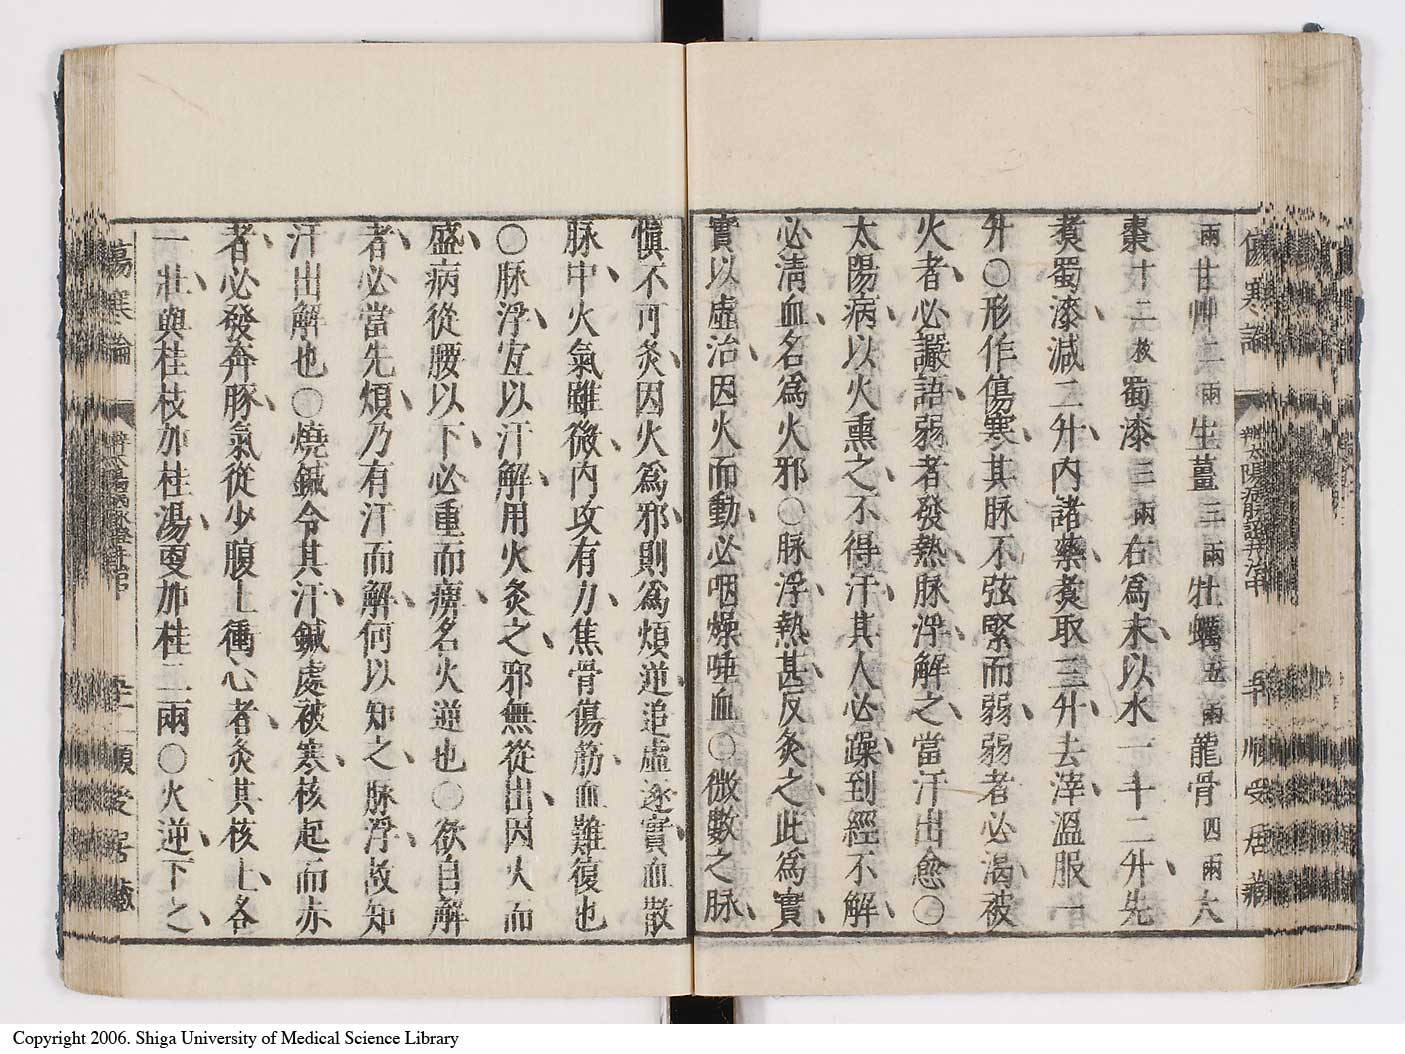 傷寒論
辨太陽病脉證并治中
順受居藏
兩甘艸二兩生薑三兩牡蠣五兩龍骨四兩大
棗十二枚蜀漆三兩右爲末以水一斗二升先
煑蜀漆減二升内諸藥煑取三升去滓溫服一
升○形作傷寒其脉不弦緊而弱弱者必渴被
火者必讝語弱者發熱脉浮解之當汗出愈○
太陽病以火熏之不得汗其人必躁到經不解
必清血名爲火邪○脉浮熱甚反灸之此爲實
實以虛治因火而動必咽燥唾血○微數之脉
愼不可灸因火爲邪則爲煩逆追虛逐實血散
脉中火氣雖微内攻有力焦骨傷筋血難復也
○脉浮宜以汗解用火灸之邪無從出因火而
盛病從腰以下必重而痹名火逆也○欲自解
者必當先煩乃有汗而解何以知之脉浮故知
汗出解也○燒鍼令其汗鍼處被寒核起而赤
者必發奔豚氣從少腹上衝心者灸其核上各
一壯與桂枝加桂湯更加桂二兩○火逆下之
傷寒論
順受居藏
Copyright 2006. Shiga University of Medical Science Library